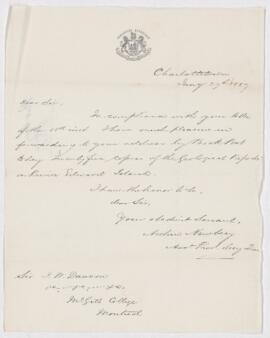 Charlottetown
Jany 27th 1887
Dear Sir,
In compliance with your letter
of the inst I have much pleasure in
forwarding to your address by Book Post
today Twenty five copies of the Geological Report
on Prince Edward Island.
I have the honor to be
Dear Sir,
Your obedient Servant,
Arthur Newbery
Asst Prov. Secy
Sir J. W. Dawson
McGill College
Montreal